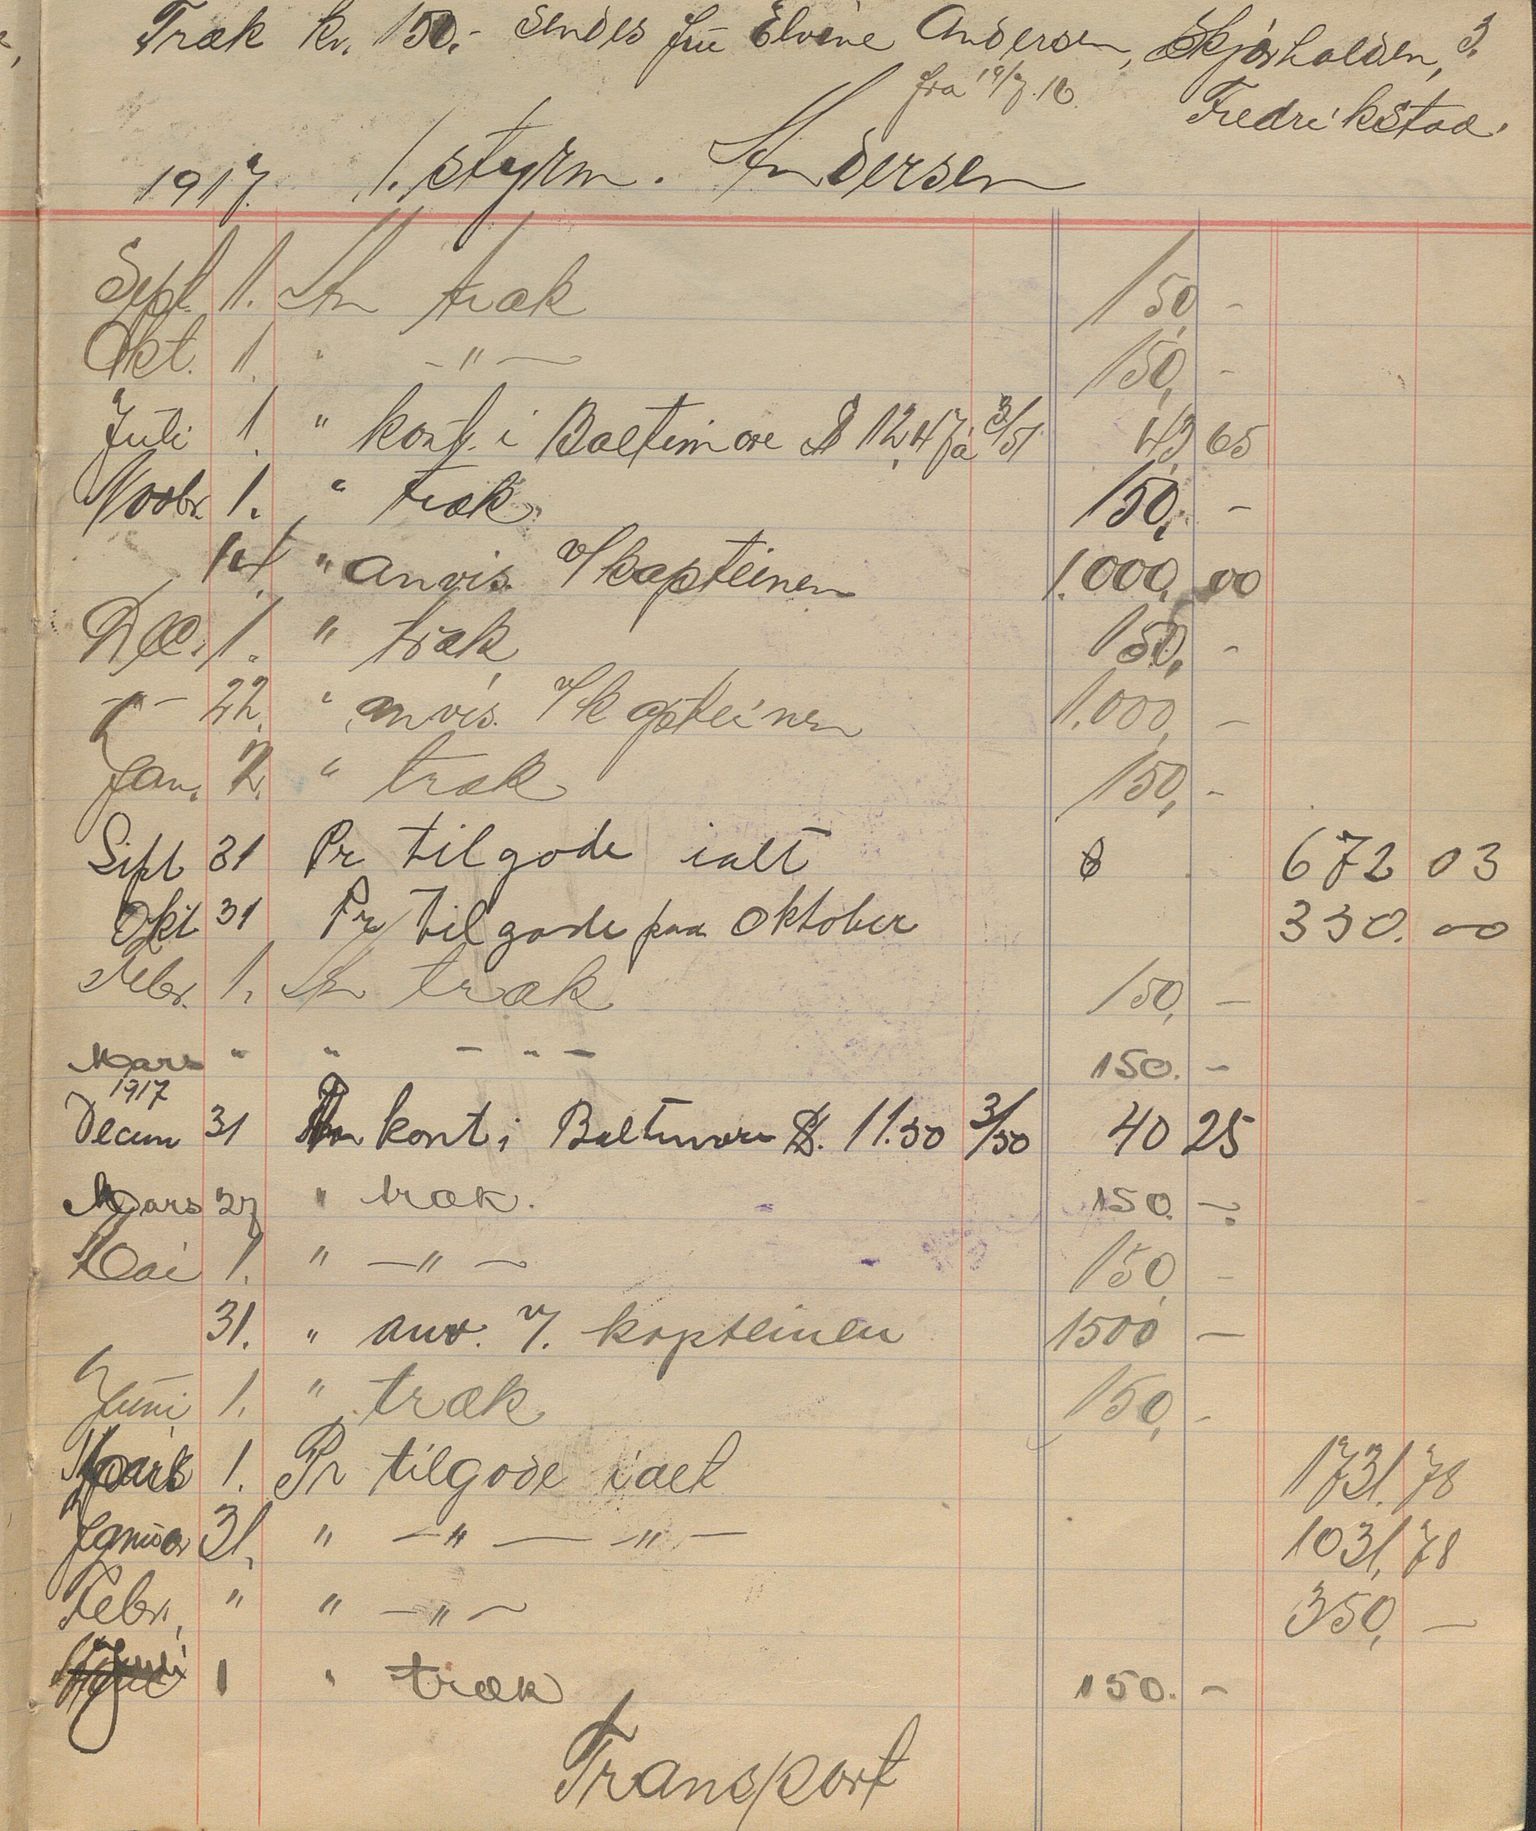 Træk kr. 150.- sendes fru Elvine Andersen, Skjærhalden, 3.
fra 19/7.18
Fredrikstad.
1917. 1. styrm. Andersen
Sept. 1. An træk 150, -
Okt. 1. " - " - 150, -
Juli 1. " kont. i Baltimore $ 12,47 à 3/51 43 65
Novbr. 1. " træk. 150, -
14. " anvis. v/ kapteinen 1.000, 00
Dec. 1. " træk 150, -
- " - 22. " anvis. v/ kapteinen 1.000, -
Jan. 2. " træk 150, -
Sept 31 Pr tilgode ialt 672 03
Okt 31 Pr tilgode paa Oktober 330. 00
Febr. 1. An træk 150, -
Mars " " - " - 150. -
1917
Decem 31 An kont i Baltimore $. 11.50 3/50 40 25
Mars 27 " træk. 150. -
Mai 1. " - " - 150, -
31. " anv. v/. kapteinen 1500 -
Juni 1. " træk 150, -
1. Pr tilgode ialt 1731,78
Januar 31. " - " - " - 1031,78
Febr. " " - " - 350, -
Juni 1 " træk 150. -
Transport